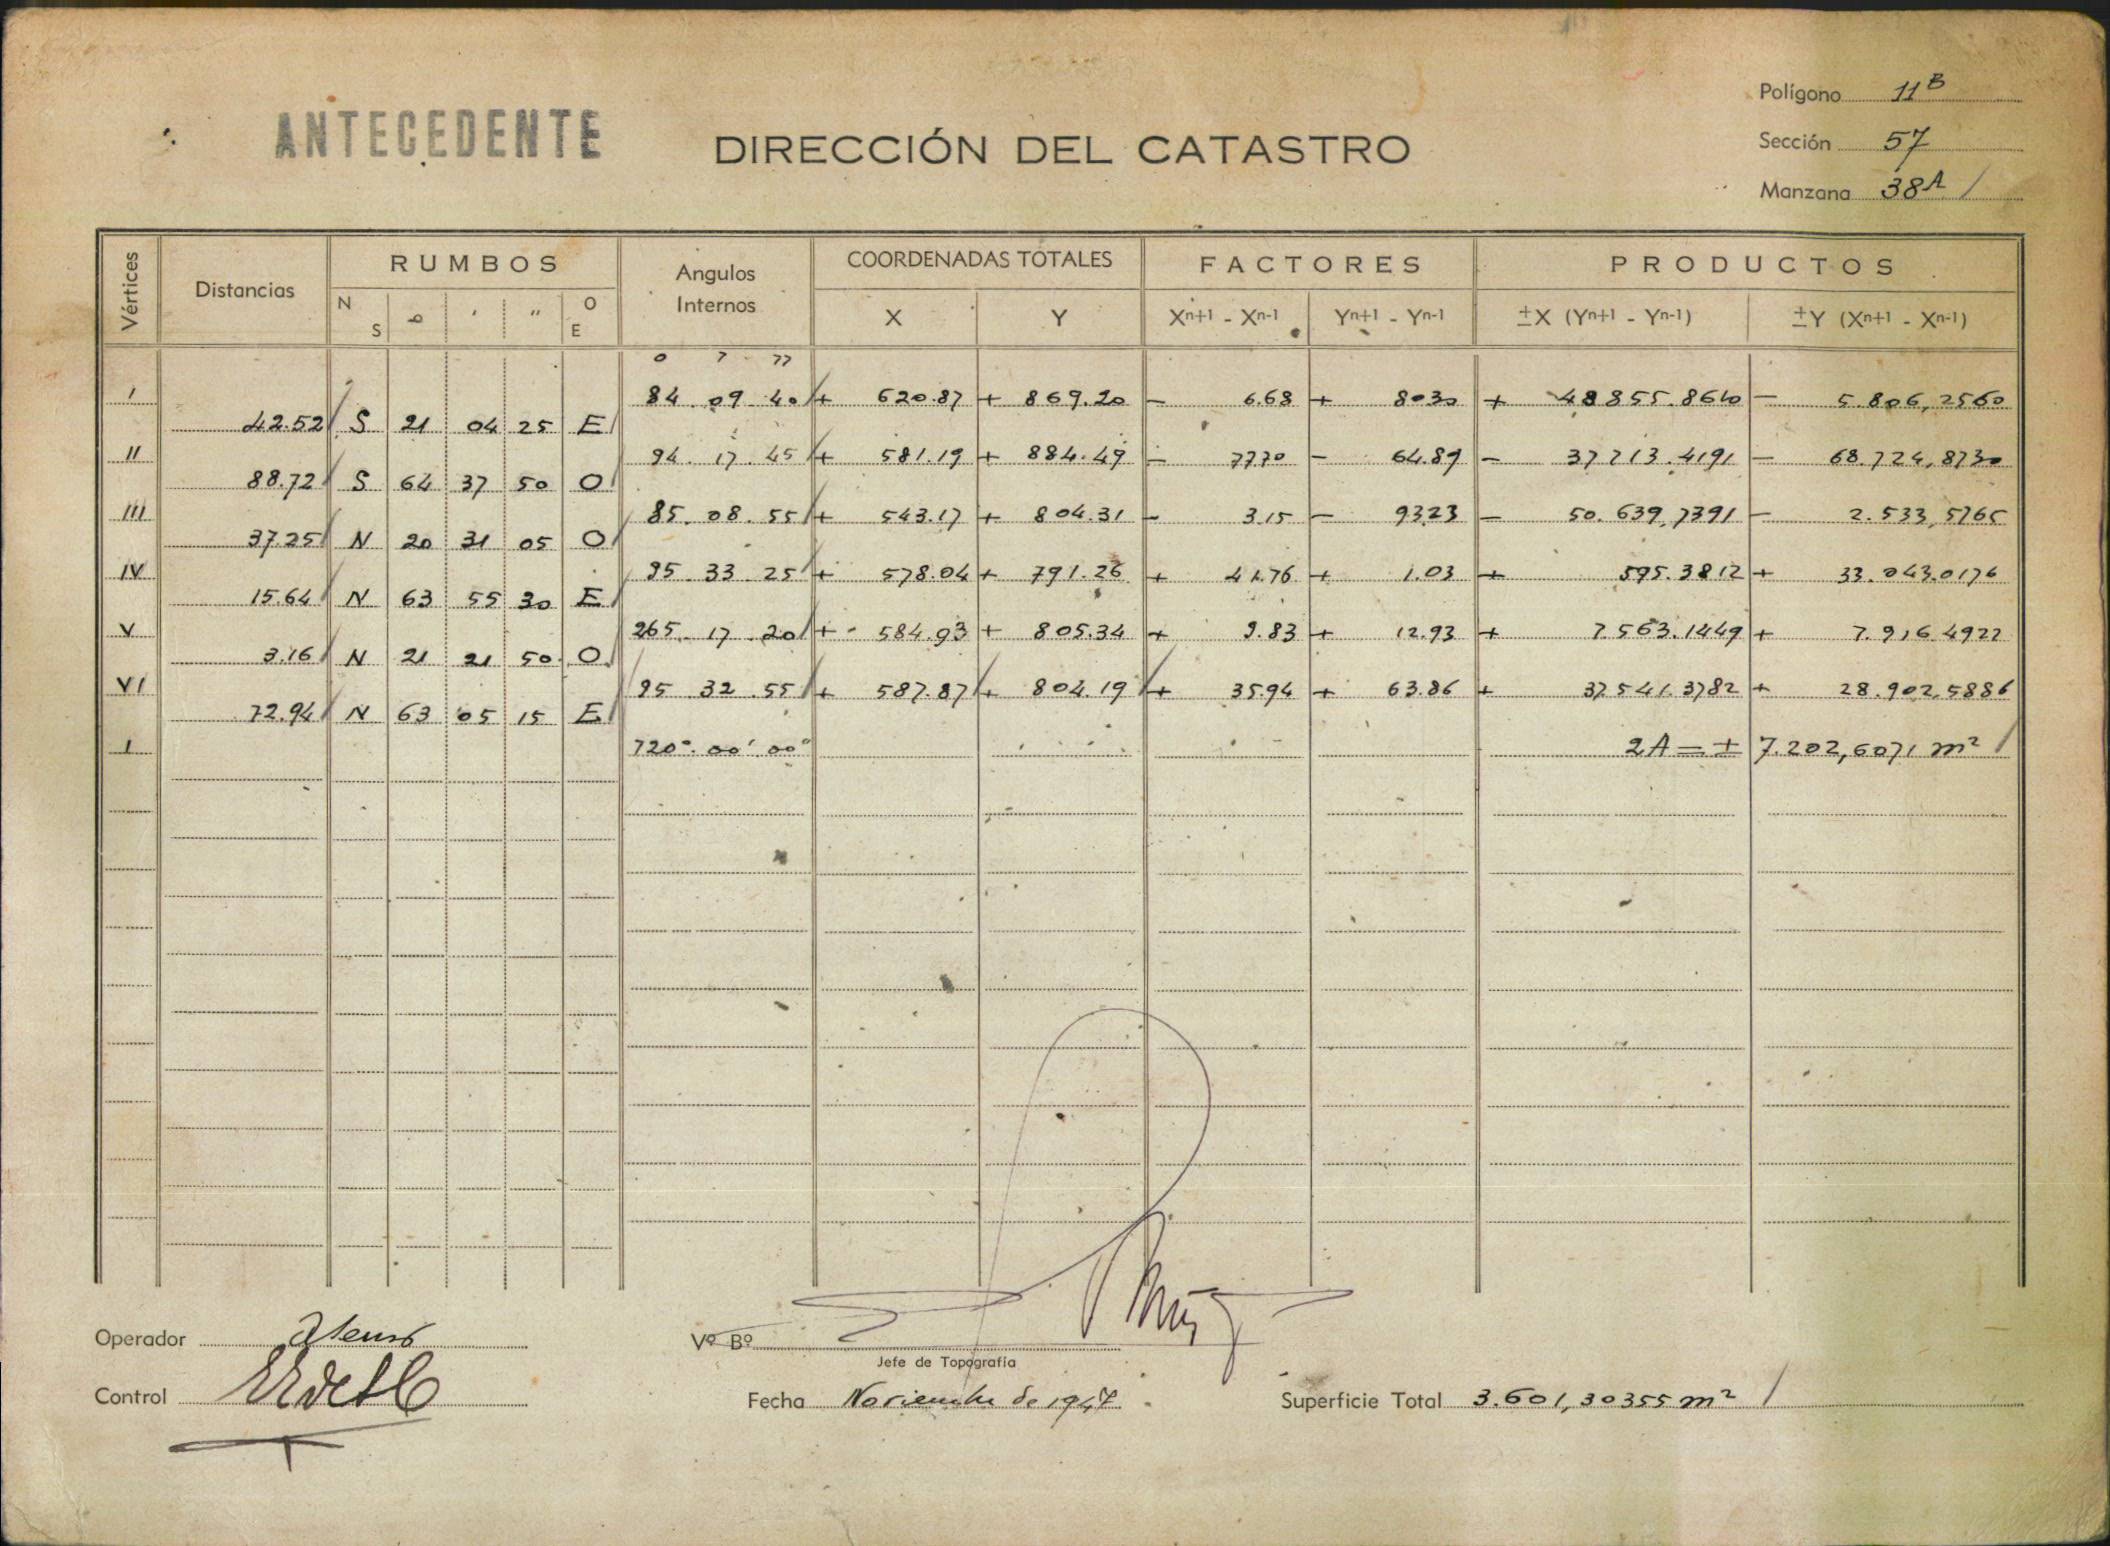 Polígono 11B
ANTECEDENTE
DIRECCIÓN DEL CATASTRO
Sección 57
Manzana 38A /
Vértices Distancias RUMBOS Angulos Internos COORDENADAS TOTALES FACTORES PRODUCTOS
N S o ' " O E X Y Xn+1 - Xn-1 Yn+1 - Yn-1 ±X (Yn+1 - Yn-1) ±Y (Xn+1 - Xn-1)
o ' "
I 84 09 40 + 620.87 + 869.20 - 6.68 + 80.30 + 48855.8610 - 5.806,2560
42.52 S 21 04 25 E
II 94 17 45 + 581.19 + 884.49 - 77.70 - 64.89 - 37713.4191 - 68.724,8730
88.72 S 64 37 50 O
III 85 08 55 + 543.17 + 804.31 - 3.15 - 93.23 - 50.639,7391 - 2.533,5765
37.25 N 20 31 05 O
IV 95 33 25 + 578.04 + 791.26 + 41.76 + 1.03 + 595.3812 + 33.043.0176
15.64 N 63 55 30 E
V 265 17 20 + 584.93 + 805.34 + 9.83 + 12.93 + 7563.1449 + 7.916.4922
3.16 N 21 21 50 O
VI 95 32 55 + 587.87 + 804.19 + 35.94 + 63.86 + 37541.3782 + 28.902,5886
72.94 N 63 05 15 E
I 720°.00'00" 2A = ± 7.202,6071 m² /
Operador
Vº Bº
Jefe de Topografía
Control
Fecha Noviembre de 1947.
Superficie Total 3.601,30355 m² /